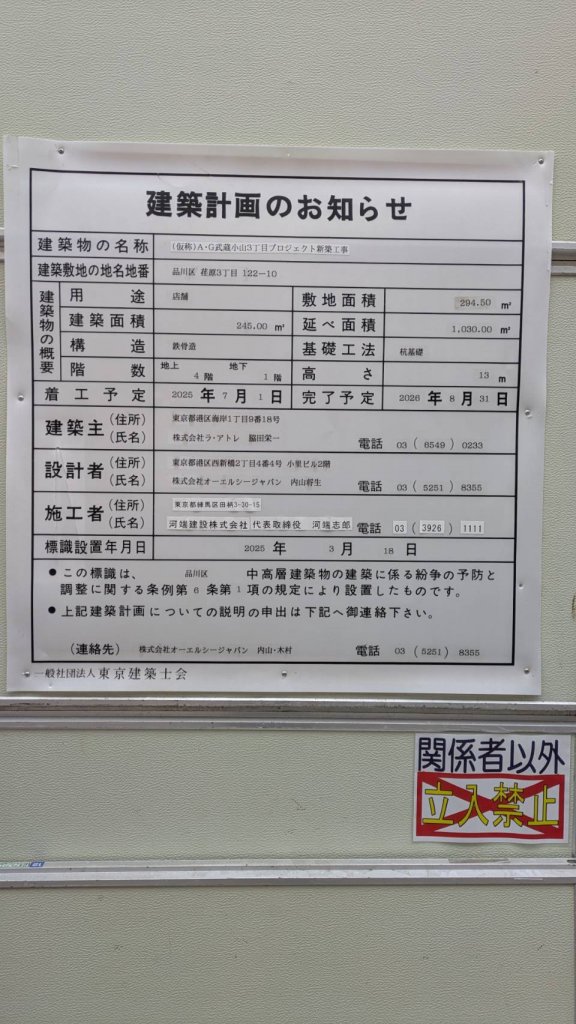 建築計画のお知らせ
建築物の名称 (仮称)A・G武蔵小山3丁目プロジェクト新築工事
建築敷地の地名地番 品川区 荏原3丁目 122-10
建築物の概要
用途 店舗 敷地面積 294.50 m²
建築面積 245.00 m² 延べ面積 1,030.00 m²
構造 鉄骨造 基礎工法 杭基礎
階数 地上 4 階 地下 1 階 高さ 13 m
着工予定 2025 年 7 月 1 日 完了予定 2026 年 8 月 31 日
建築主 (住所) 東京都港区海岸1丁目9番18号
(氏名) 株式会社ラ・アトレ 脇田栄一 電話 03 (6549) 0233
設計者 (住所) 東京都港区西新橋2丁目4番4号 小里ビル2階
(氏名) 株式会社オーエルシージャパン 内山将生 電話 03 (5251) 8355
施工者 (住所) 東京都練馬区田柄3-30-15
(氏名) 河端建設株式会社 代表取締役 河端志郎 電話 03 (3926) 1111
標識設置年月日 2025 年 3 月 18 日
●この標識は、 品川区 中高層建築物の建築に係る紛争の予防と
調整に関する条例第 6 条第 1 項の規定により設置したものです。
●上記建築計画についての説明の申出は下記へ御連絡下さい。
(連絡先) 株式会社オーエルシージャパン 内山・木村 電話 03 (5251) 8355
一般社団法人 東京建築士会
関係者以外
立入禁止